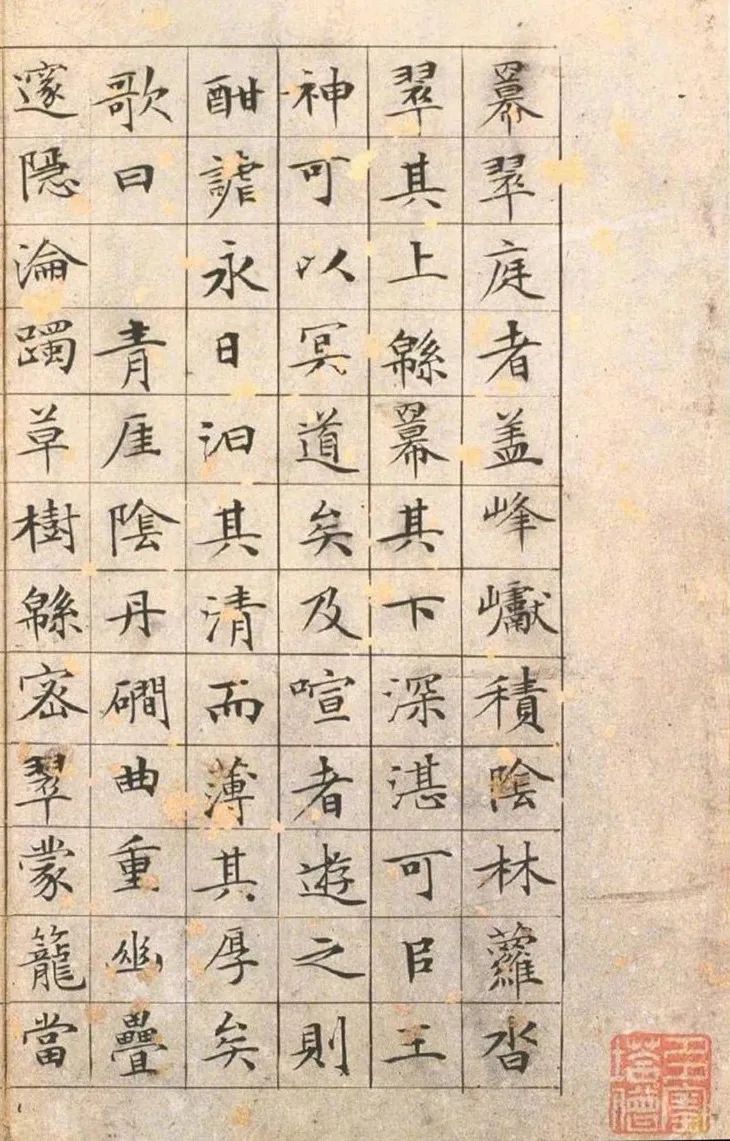 羃翠庭者盖峰巘積陰林蘿沓
翠其上緜羃其下深湛可㠯王
神可以冥道矣及喧者遊之則
酣謔永日汩其清而薄其厚矣
歌曰 青厓陰丹磵曲重幽疊
邃隠淪躅草樹緜密翠蒙籠當